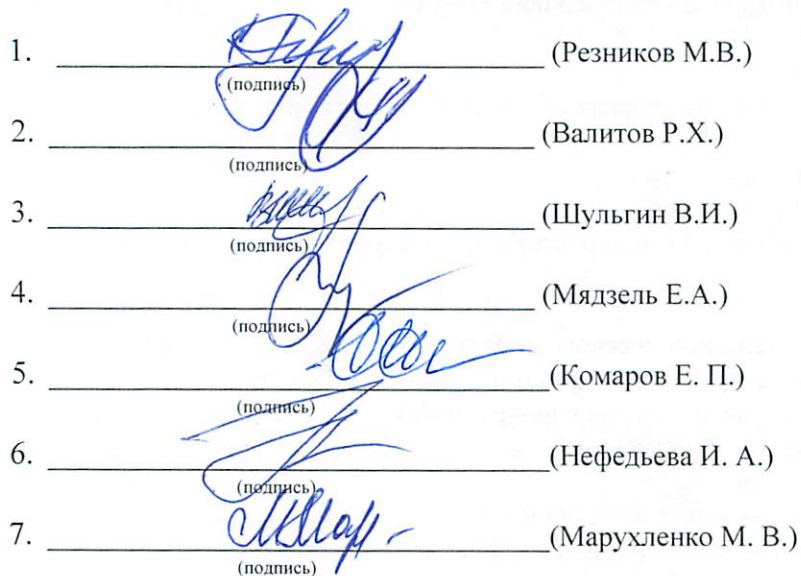 1. ____________________ (Резников М.В.)
(подпись)
2. ____________________ (Валитов Р.Х.)
(подпись)
3. ____________________ (Шульгин В.И.)
(подпись)
4. ____________________ (Мядзель Е.А.)
(подпись)
5. ____________________ (Комаров Е. П.)
(подпись)
6. ____________________ (Нефедьева И. А.)
(подпись)
7. ____________________ (Марухленко М. В.)
(подпись)